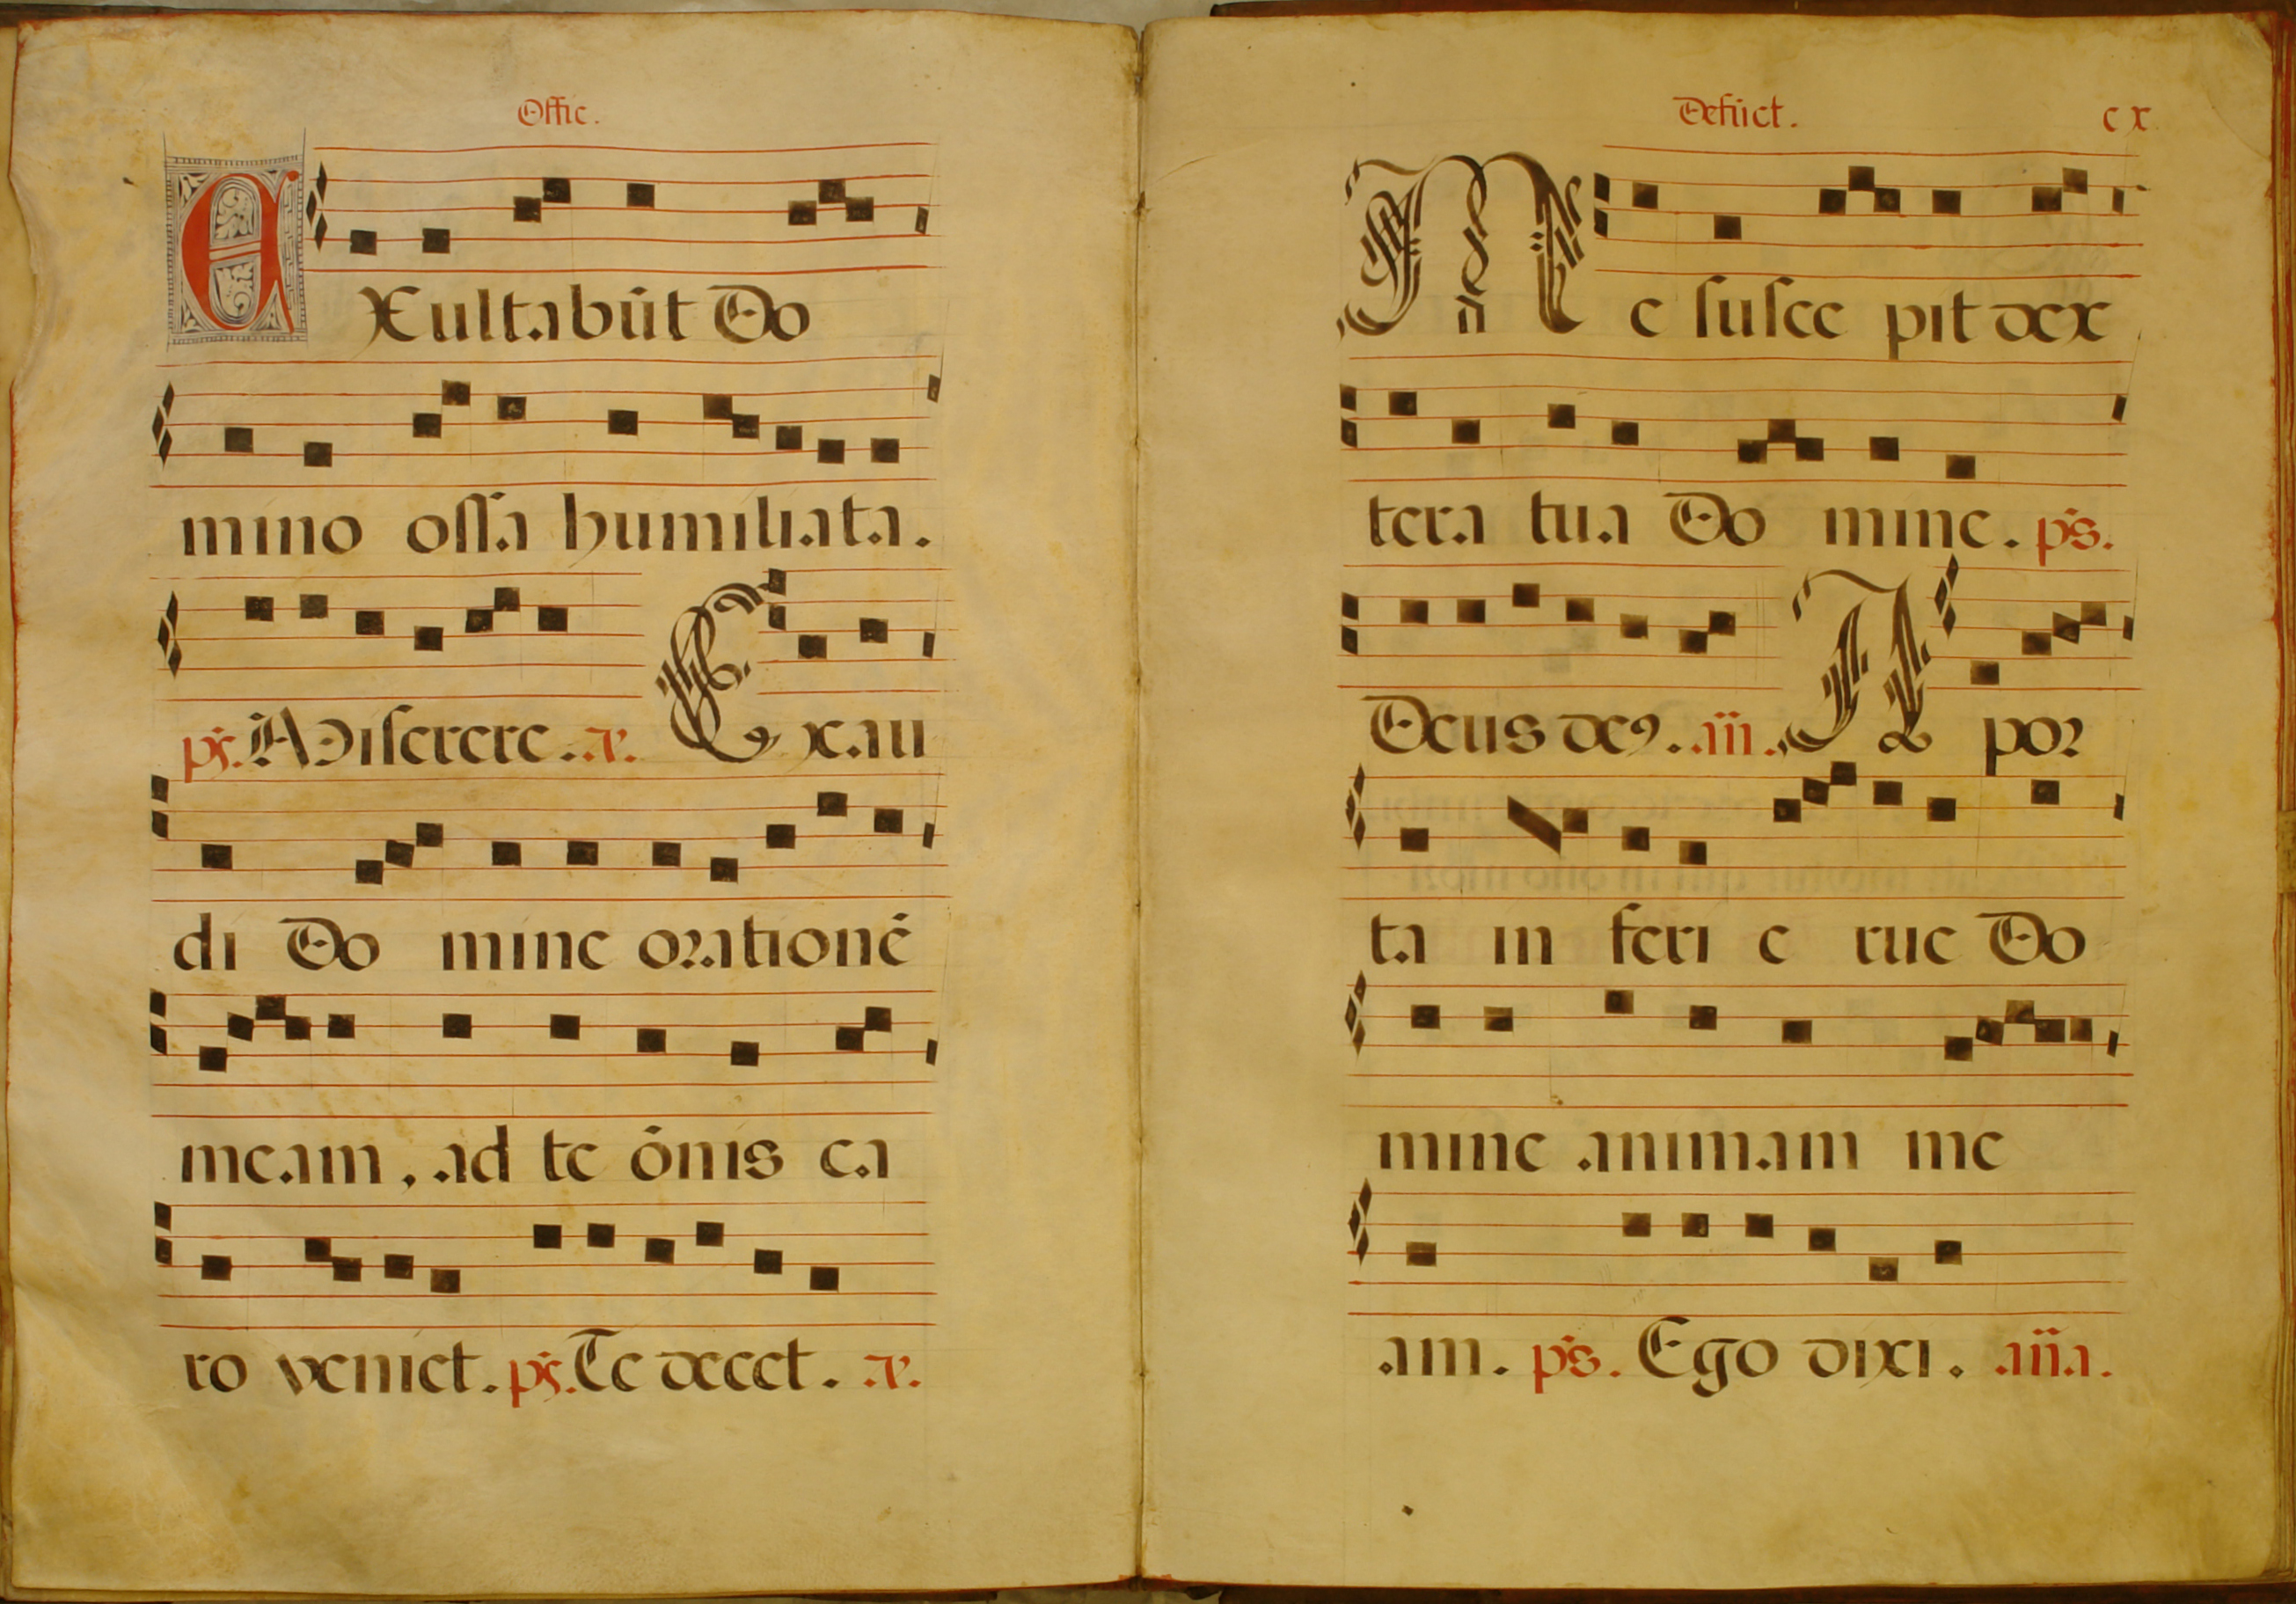 Offic.
Exultabūt Do
mino ossa humiliata.
ps. Miserere. a. Exau
di Do mine orationē
meam, ad te ōnis ca
ro veniet. ps. Te decet. a.
Defūct. cx
Me susce pit dex
tera tua Do mine. ps.
Deus de9. añ. A por
ta in feri e rue Do
mine animam me
am. ps. Ego dixi. aña.